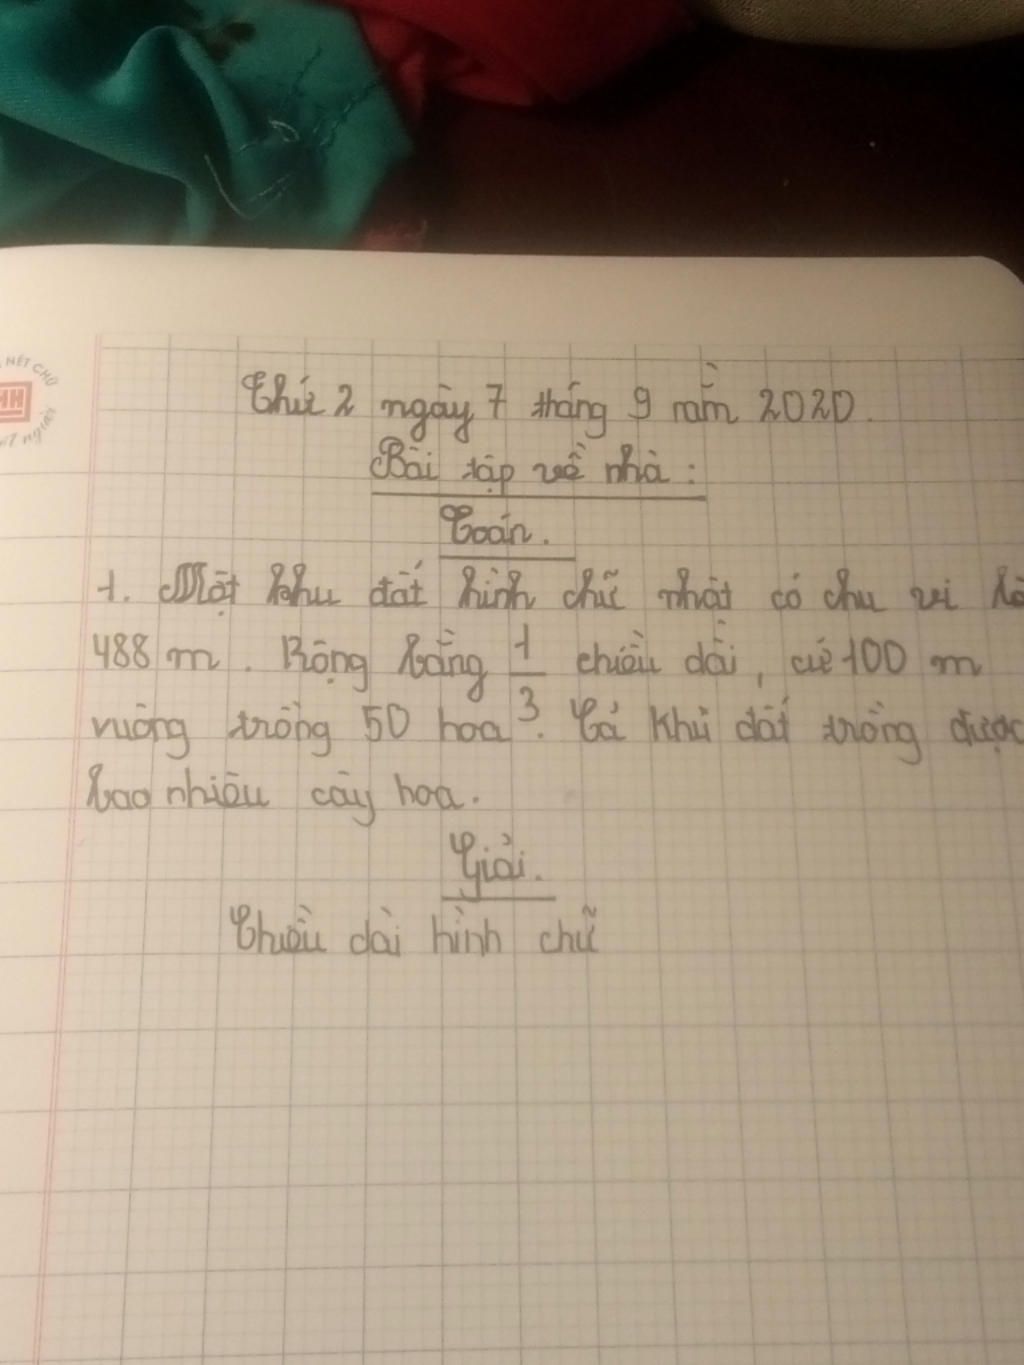 NÉT CHỮ
HH
nết người
Thứ 2 ngày 7 tháng 9 năm 2020.
Bài tập về nhà:
Toán.
1. Một khu đất hình chữ nhật có chu vi là
488 m. Rộng bằng 1/3 chiều dài, cứ 100 m
vuông trồng 50 hoa. Cả khu đất trồng được
bao nhiêu cây hoa.
Giải.
Chiều dài hình chữ